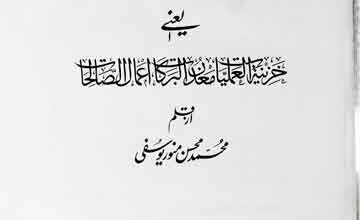 یعنی
خزینۃ العملیات معدن البرکات اعمال الصالحات
از قلم
محمد محسن منور یوسفی